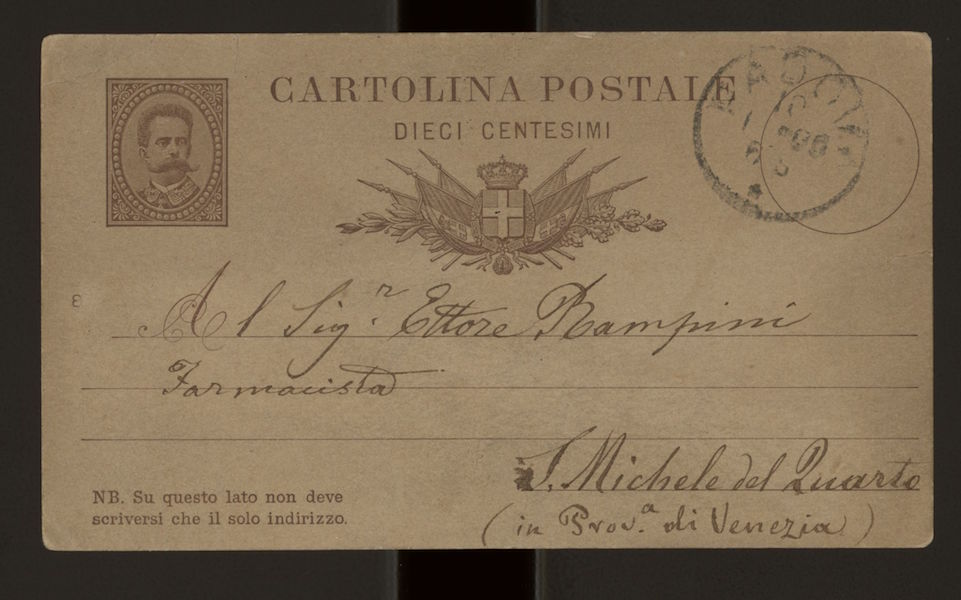 CARTOLINA POSTALE
DIECI CENTESIMI
PADOVA
Al Sig.r Ettore Rampini
Farmacista
S. Michele del Quarto
(in Prov.a di Venezia)
NB. Su questo lato non deve
scriversi che il solo indirizzo.